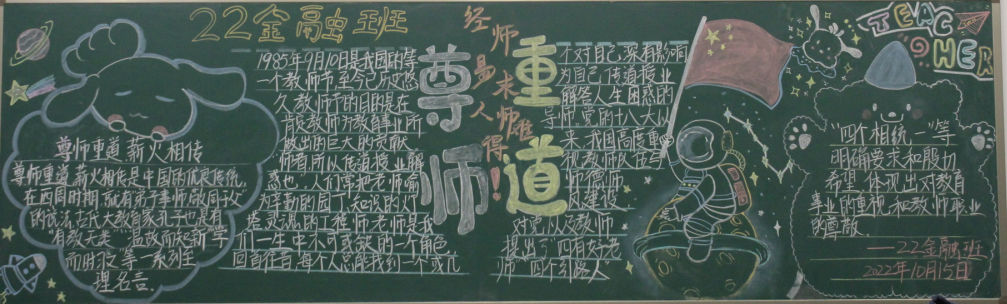 22金融班
TEACHER
尊师重道
经师易求人师难得!
尊师重道 薪火相传
尊师重道,薪火相传是中国的优良传统,
在西周时期,就有弟子事师,敬同于父
的说法,古代大教育家孔子也是有
"有教无类""温故而知新""学
而时习"等一系列至
理名言。
1985年9月10日是我国的第
一个教师节,至今已欣悠
久,教师节的目的是在
肯定教师为教育事业所
做出的巨大的贡献。
师者所以传道授业解
惑也,人们常把老师喻
为辛勤的园丁,知识的灯
塔,灵魂的工程师,老师是我
们一生中不可或缺的一个角色
回首往昔,每个人总能找到一个或几
个对自己深有影响
为自己传道授业
解答人生困惑的
学师,党的十八大以
来,我国高度重
视教师队伍与
师德师
风建设
对党,以及教师
提出了"四有好老
师""四个引路人
"四个相统一"等
明确要求和殷切
希望,体现出对教育
事业的重视和教师职业
的尊敬.
——22金融班
2022年10月15日